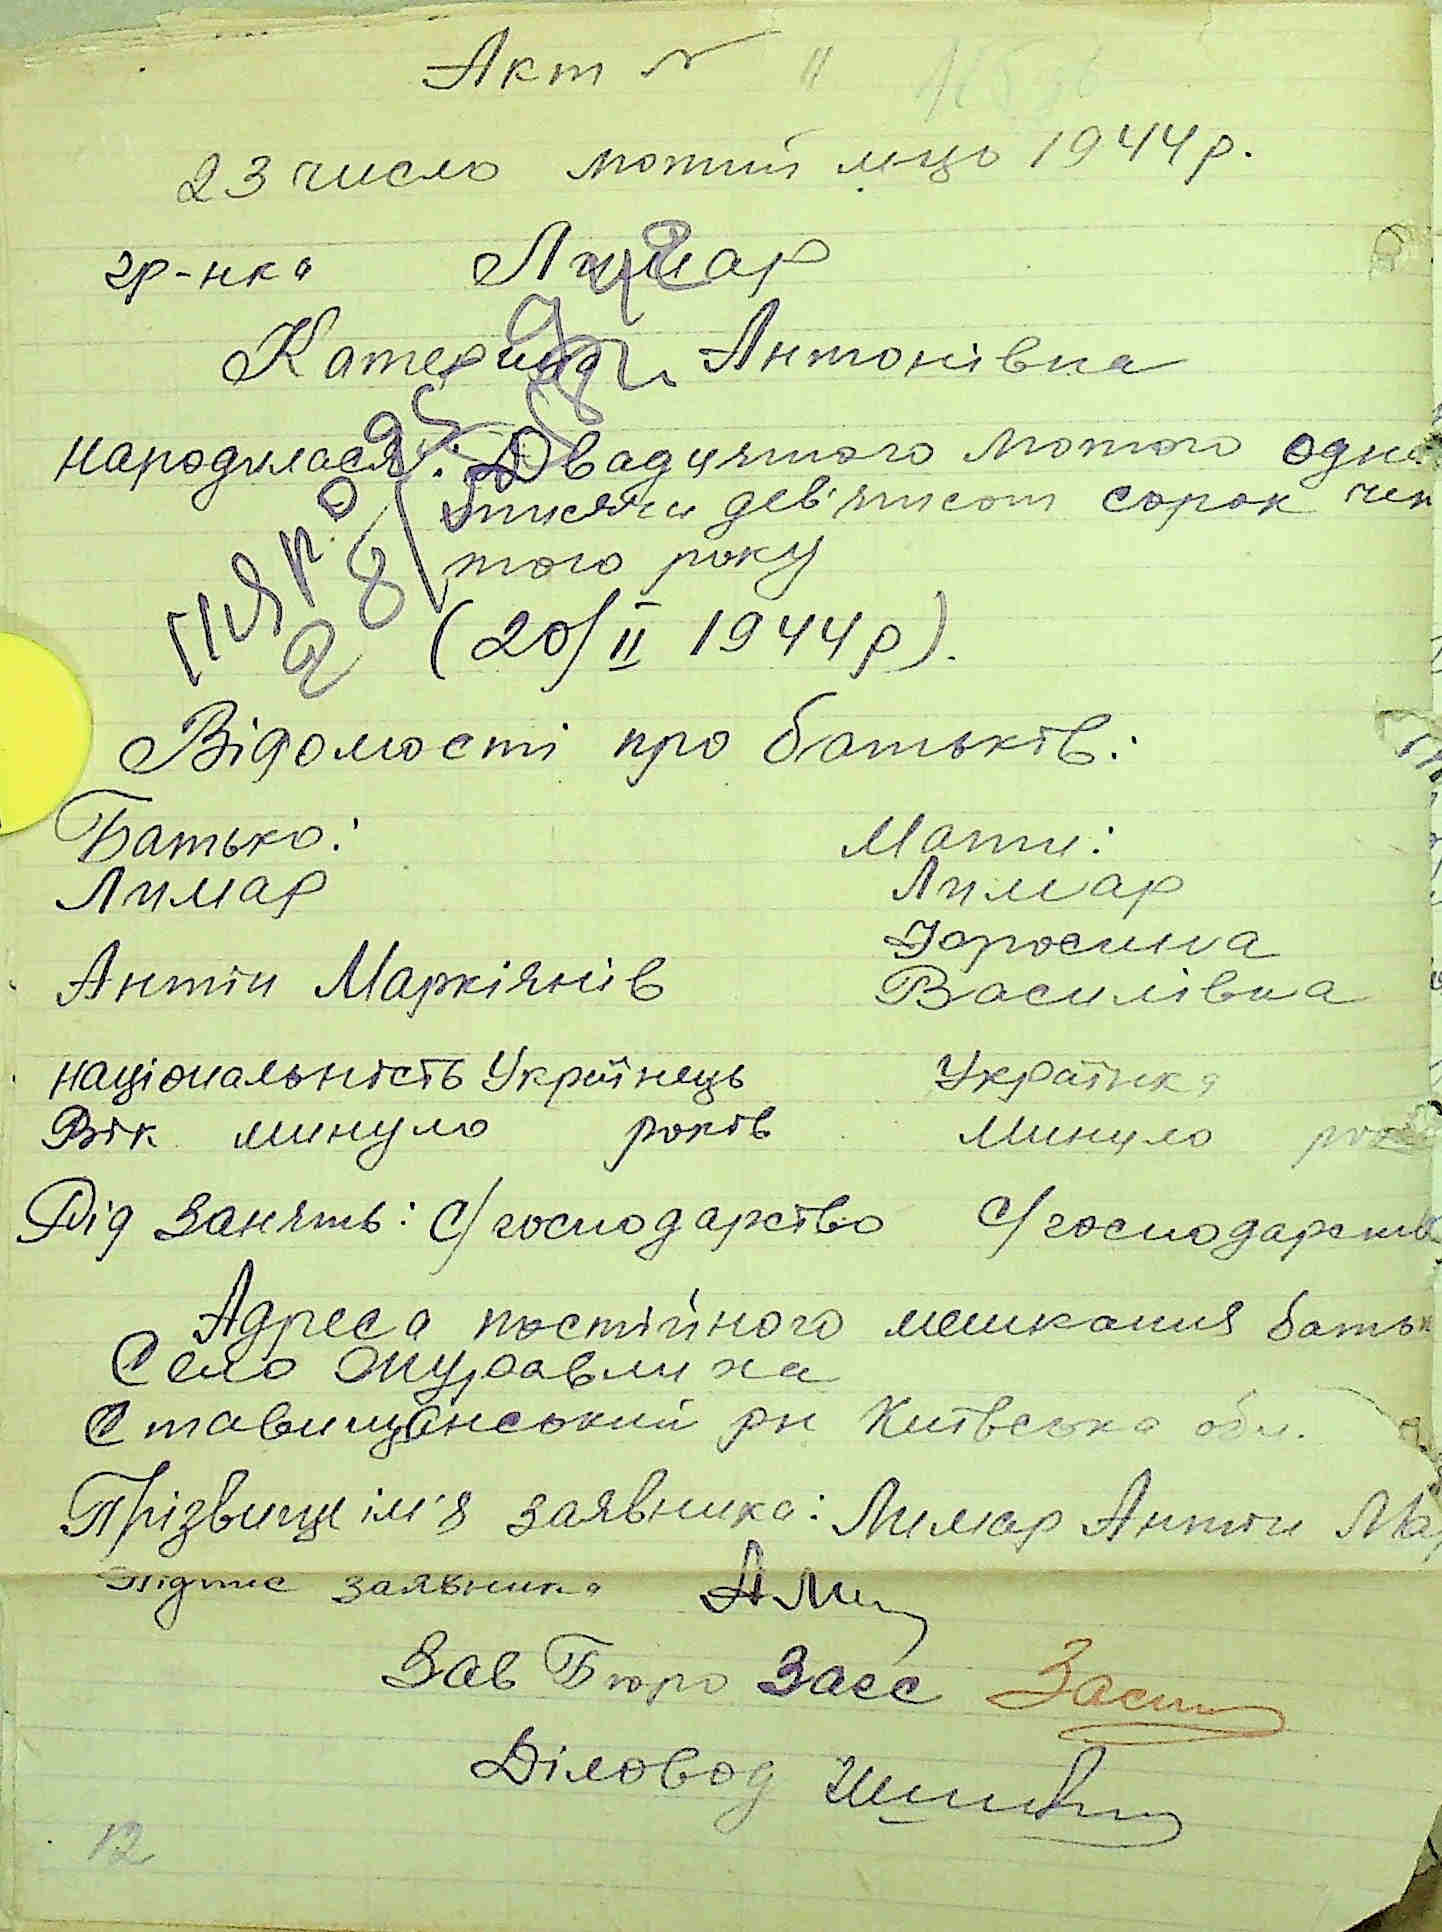 Акт № 11
23 число лютий м-ць 1944 р.
гр-нка Лимар
Катерина Антонівна
народилася: Двадцятого лютого одна
тисяча дев'ятсот сорок чет
того року
(20/II 1944 р).
Відомості про батьків:
Батько: Мати:
Лимар Лимар
Антін Маркіянів Юросина
Василівна
національність Українець Українка
Вік минуло років Минуло рок
Рід занять: с/господарство с/господарств
Адреса постійного мешкання батьк
Село Журавлиха
Ставищанський рн Київська обл.
Прізвище ім'я заявника: Лимар Антін Мар
Підпис заявника АЛи
Зав Бюро Загс
Діловод
12